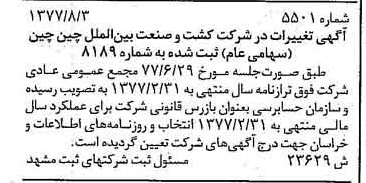 شماره ۵۵۰۱ ۱۳۷۷/۸/۳
آگهی تغییرات در شرکت کشت و صنعت بین‌الملل چین چین
(سهامی عام) ثبت شده به شماره ۸۱۸۹
طبق صورت‌جلسه مورخ ۷۷/۶/۲۹ مجمع عمومی عادی
شرکت فوق ترازنامه سال منتهی به ۱۳۷۷/۲/۳۱ به تصویب رسیده
و سازمان حسابرسی بعنوان بازرس قانونی شرکت برای عملکرد سال
مالی منتهی به ۱۳۷۷/۲/۳۱ انتخاب و روزنامه‌های اطلاعات و
خراسان جهت درج آگهی‌های شرکت تعیین گردیده است.
ش ۲۳۶۲۹ مسئول ثبت شرکتهای ثبت مشهد